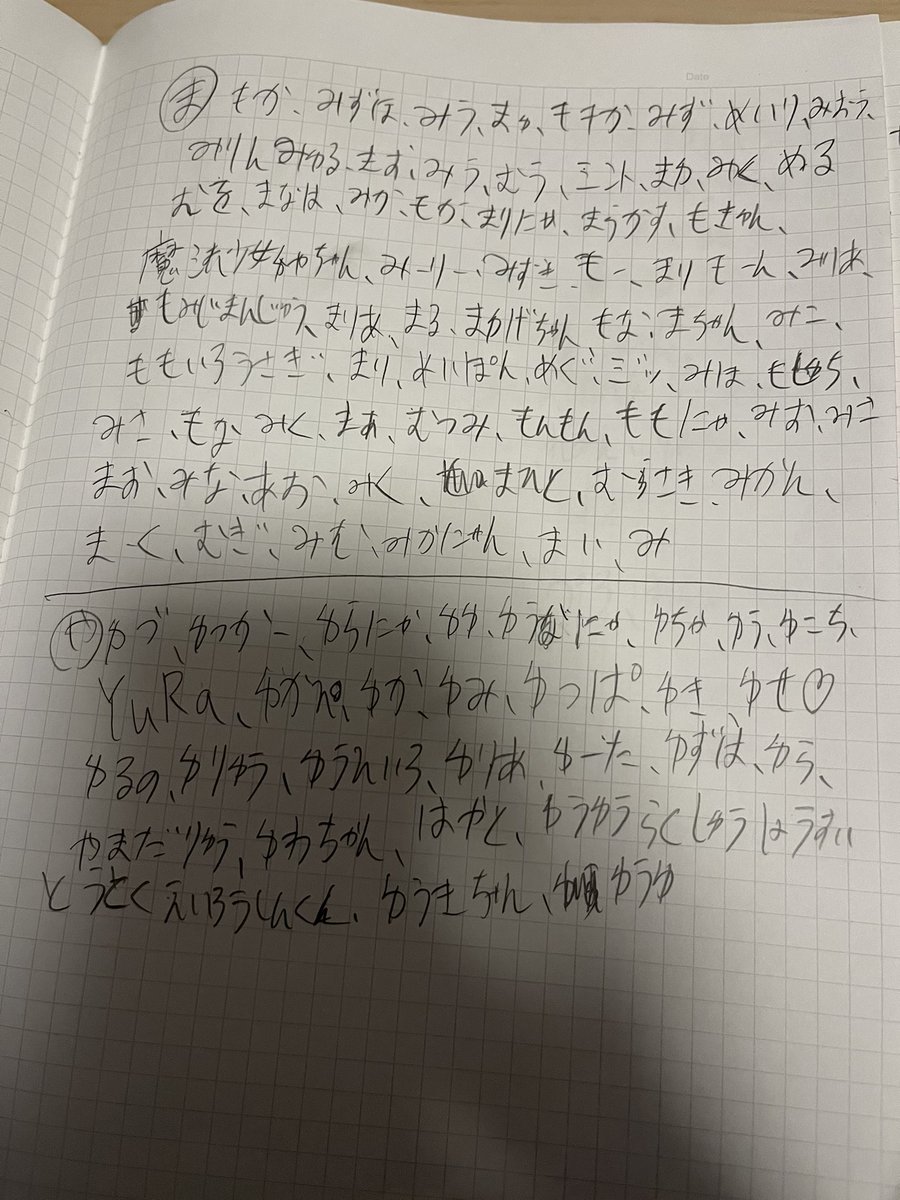 Date
ま もか、みずほ、みう、まゆ、ももか、みず、めいり、みおう、
みりん みゆる、きむ、みう、むう、ミント、まか、みく、める
むを、まなは、みか、もか、まりにゃ、まうかす、もきゅん、
魔法少女ゆやちゃん、みーりー、みすき、もー、まりもーん、みりあ、
もみじまんじゅう、まりあ、まる、まかげちゃん もな、まちゃん、みこ、
ももいろうさぎ、まり、めいぽん、めぐ、ミツ、みほ、
みさ、もな、みく、まあ、むつみ、もんもん、ももにゃ、みお、みこ
まお、みな、あお、みく、まひと、むらさき、みかん、
まーく、むぎ、みむ、みかにゃん、まい、み
や ゆづ、ゆっかー、ゆらにか、ゆゆ、ゆちゃ、ゆう、ゆこち、
YuRa、ゆか、ゆみ、ゆっぱ、ゆき、ゆせ♡
ゆるの、ゆりゆう、ゆうれいろ、ゆりあ、ゆーた、ゆずは、ゆら、
やまだりゅう、ゆわちがん、はやと、ゆうゆうらくしゅうしょうすい
とうとくえいろうしんくん、ゆうきちゃん、ゆうゆ